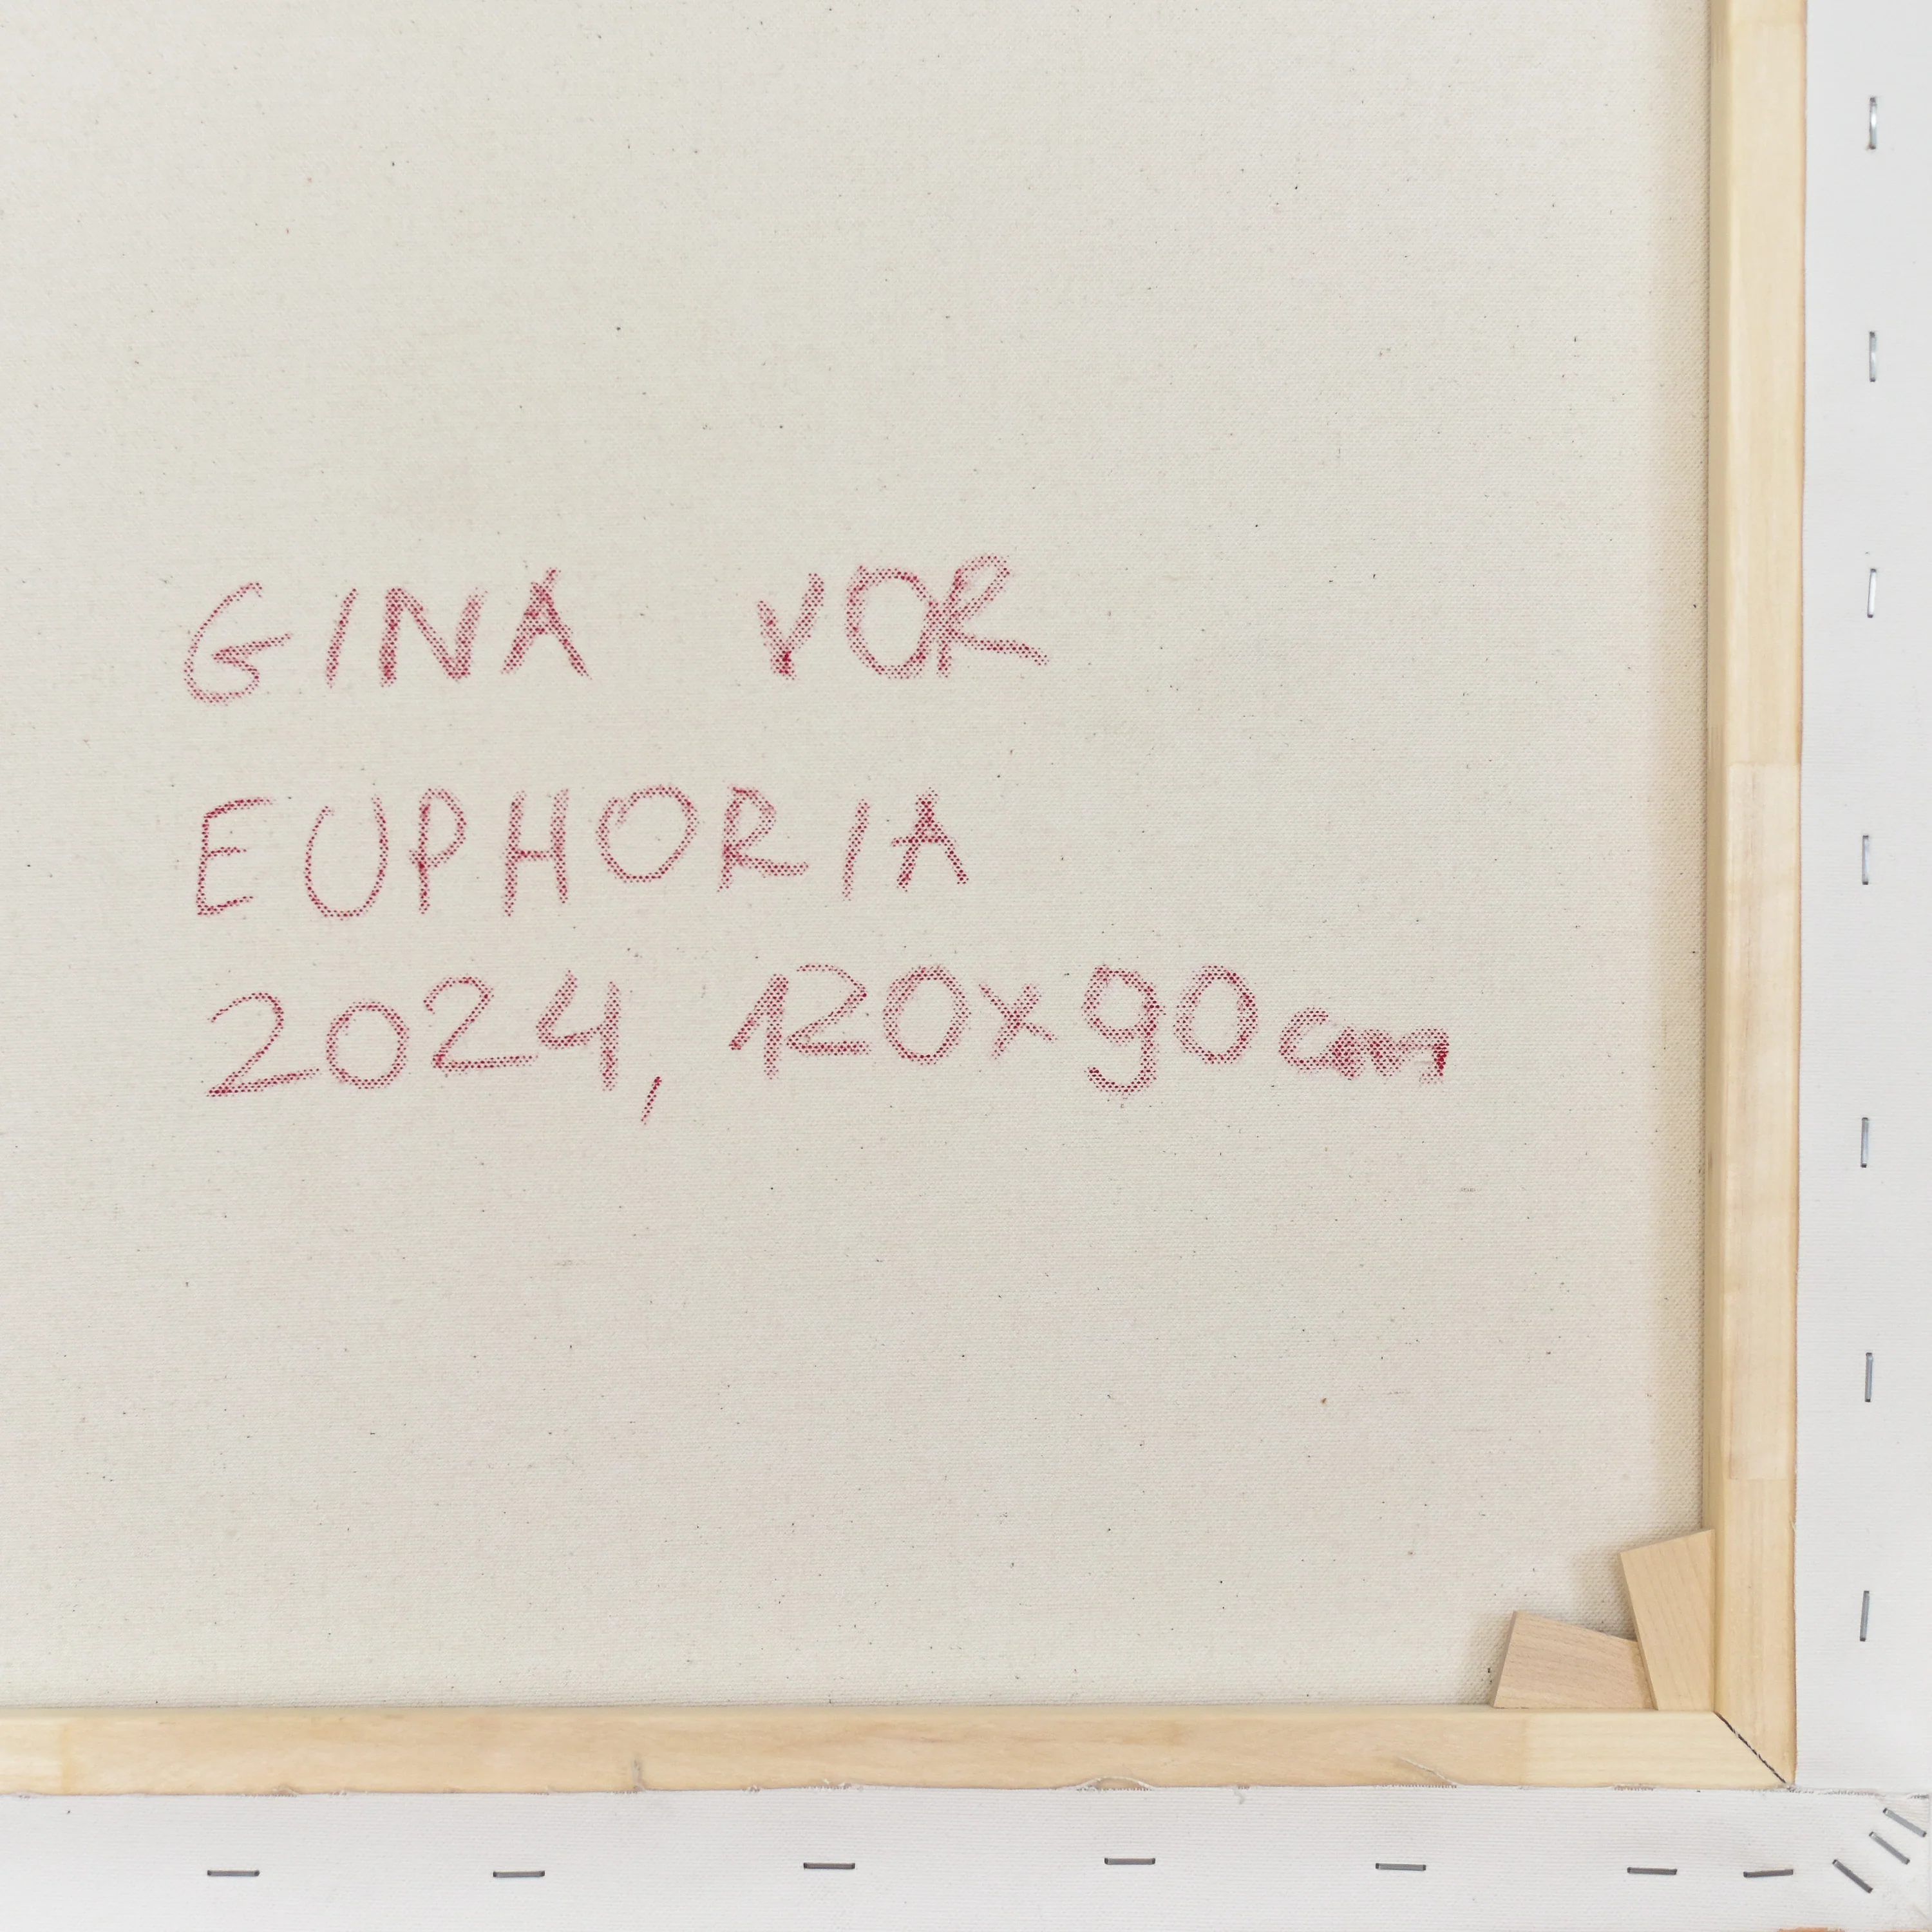 GINA VOR
EUPHORIA
2024, 120x90cm